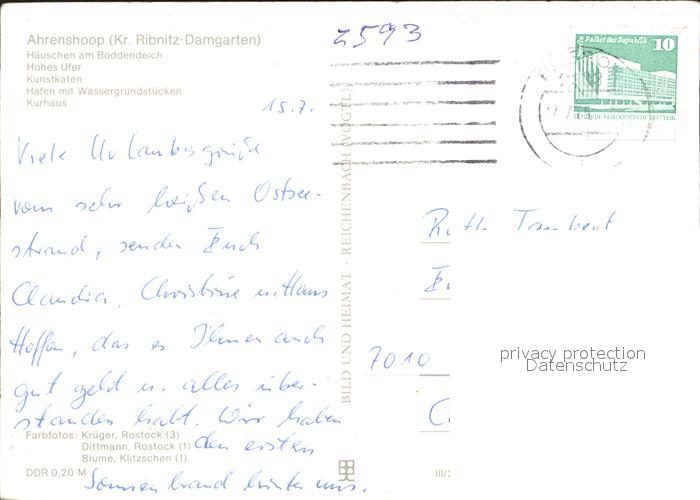 Ahrenshoop (Kr. Ribnitz-Damgarten)
Häuschen am Boddendeich
Hohes Ufer
Kunstkaten
Hafen mit Wassergrundstücken
Kurhaus
2593
Palast der Republik 10
DEUTSCHE DEMOKRATISCHE REPUBLIK
15.7.
Viele Urlaubsgrüße
vom sehr heißen Ostsee-
strand, senden Euch
Claudia, Christine u. Hans
Hoffen, das es Ihnen auch
gut geht u. alles über-
standen habt. Wir haben
den ersten
Sonnenbrand hinter uns.
BILD UND HEIMAT · REICHENBACH (VOGTL)
Ruth
7010
privacy protection
Datenschutz
Farbfotos: Krüger, Rostock (3)
Dittmann, Rostock (1)
Blume, Klitzschen (1)
DDR 0,20 M
III/